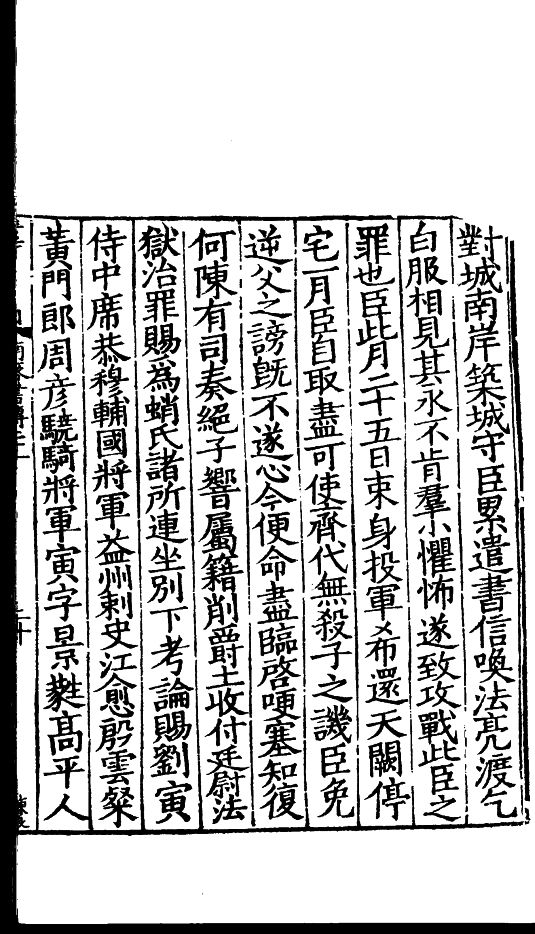 對城南岸築城守臣累遣書信喚法亮渡乞
白服相見其永不肯羣小懼怖遂致攻戰此臣之
罪也臣此月二十五日束身投軍㐅布還天闕停
宅一月臣自取盡可使齊代無殺子之譏臣免
逆父之謗旣不遂心今便命盡臨啓哽塞知復
何陳有司奏絕子響屬籍削爵土收付廷尉法
獄治罪賜爲蛸氏諸所連坐別下考論賜劉寅
侍中席恭穆輔國將軍益州刺史江悆殷雲粲
黃門郎周彥驍騎將軍寅字景蕤高平人